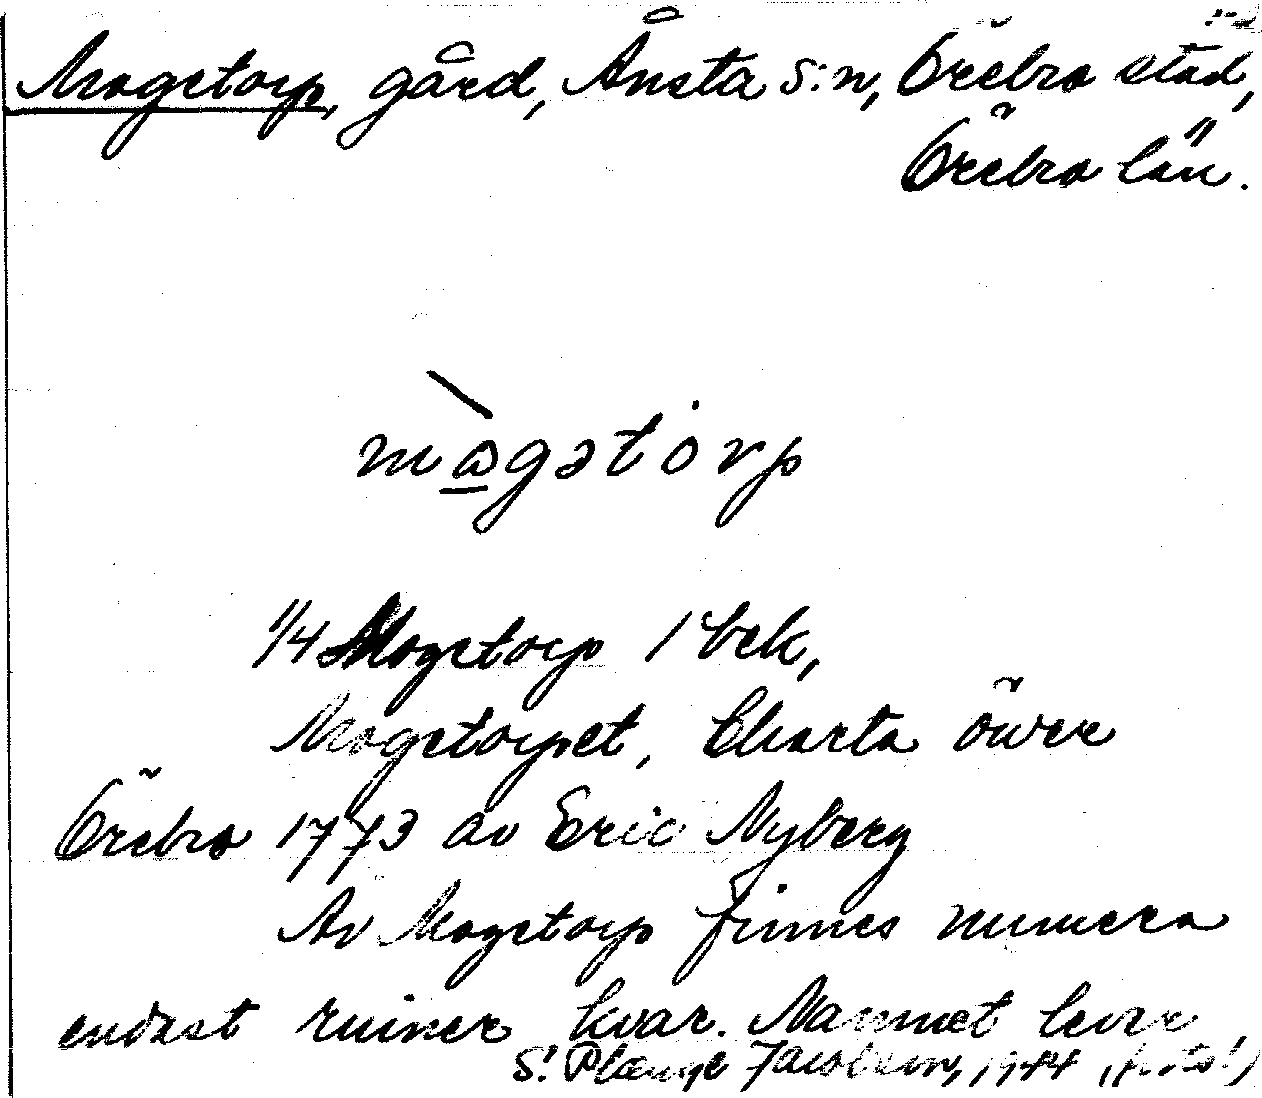 Mogetorp, gård, Ånsta s:n, Örebro stad,
Örebro län.
mògətȯrp
1/4 Mogetorp 1 bek,
Mogetorpet, Charta öwer
Örebro 1773 av Eric Nyberg
Av Mogetorp finnes numera
endast ruiner kvar. Namnet lever
S. Plænge Jacobson, 1944 (forts!)